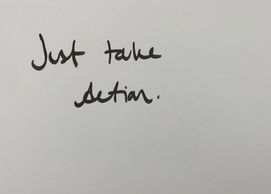 Just take
action.